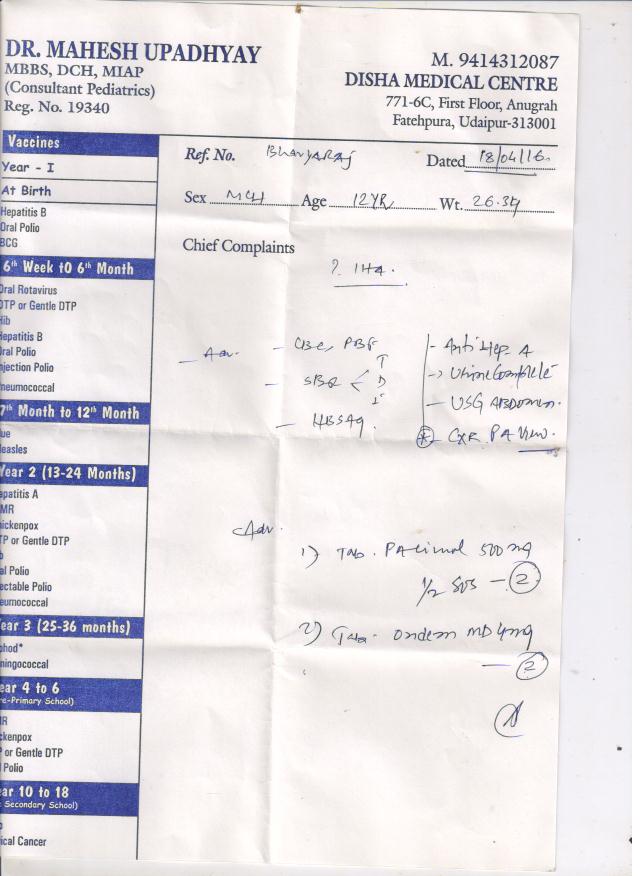 DR. MAHESH UPADHYAY
MBBS, DCH, MIAP
(Consultant Pediatrics)
Reg. No. 19340
M. 9414312087
DISHA MEDICAL CENTRE
771-6C, First Floor, Anugrah
Fatehpura, Udaipur-313001
Vaccines
Year - I
At Birth
Hepatitis B
Oral Polio
BCG
6th Week t0 6th Month
Oral Rotavirus
DTP or Gentle DTP
Hib
Hepatitis B
Oral Polio
njection Polio
neumococcal
7th Month to 12th Month
ue
easles
Year 2 (13-24 Months)
epatitis A
MR
ickenpox
TP or Gentle DTP
b
al Polio
ectable Polio
eumococcal
ear 3 (25-36 months)
phod*
ningococcal
ear 4 to 6
re-Primary School)
R
ckenpox
or Gentle DTP
Polio
ear 10 to 18
Secondary School)
ical Cancer
Ref. No. Bhavyaraj Dated 18/04/16
Sex MCH Age 12 YR Wt. 26.3
Chief Complaints
Adv. - CBC, PBF
- SBR < T D I
- HBSAg.
- Anti Hep. A
-> Urine Complete
- USG ABDOMEN.
* - CXR PA View.
Adv.
1) Tab. PAcimol 500 mg
1/2 SOS - 2
2) Tab. Ondem MD 4mg
- 2